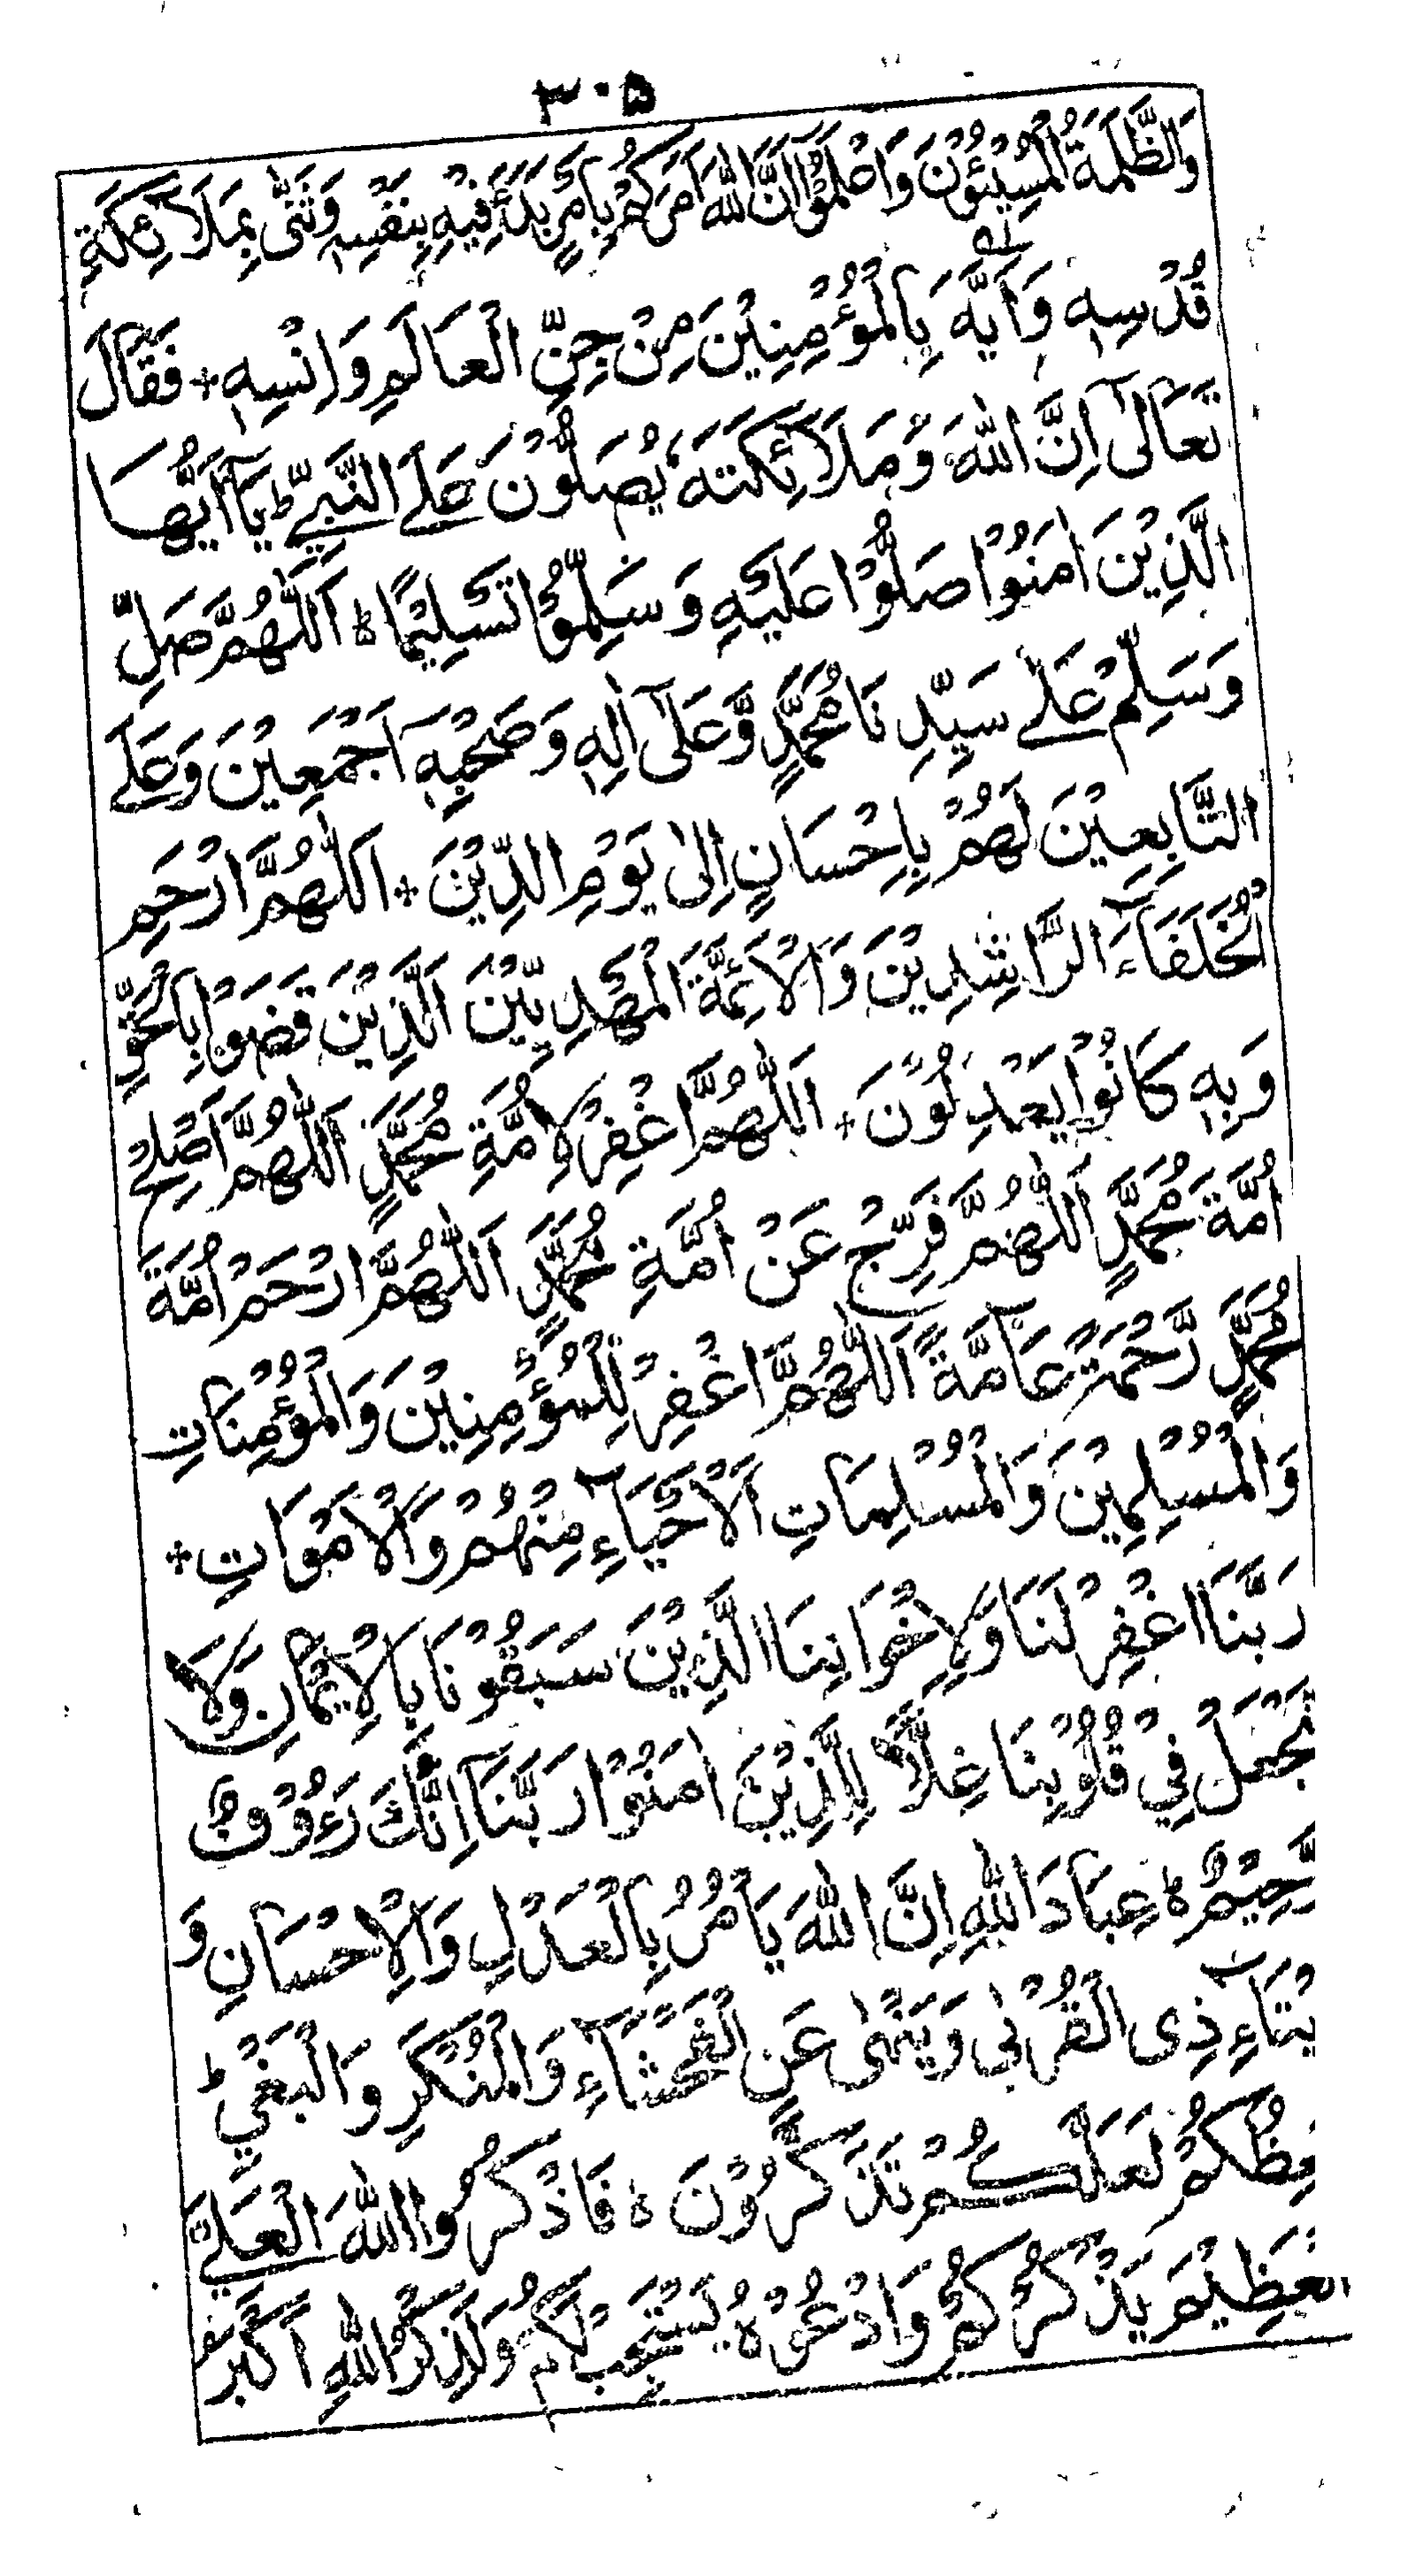 ۳۰۵
وَالظَّلَمَةُ الْمُسِيْئُوْنَ وَاعْلَمُوْا اَنَّ اللّٰهَ اَمَرَكُمْ بِاَمْرٍ بَدَأَ فِيْهِ بِنَفْسِهٖ وَثَنّٰى بِمَلَآئِكَةِ
قُدْسِهٖ وَاَيَّهَ بِالْمُؤْمِنِيْنَ مِنْ جِنِّ الْعَالَمِ وَاِنْسِهٖ + فَقَالَ
تَعَالٰى اِنَّ اللّٰهَ وَمَلَآئِكَتَهٗ يُصَلُّوْنَ عَلَى النَّبِيِّ ط يَآ اَيُّهَا
الَّذِيْنَ اٰمَنُوْا صَلُّوْا عَلَيْهِ وَسَلِّمُوْا تَسْلِيْمًا ه اَللّٰهُمَّ صَلِّ
وَسَلِّمْ عَلٰى سَيِّدِنَا مُحَمَّدٍ وَّعَلٰٓى اٰلِهٖ وَصَحْبِهٖٓ اَجْمَعِيْنَ وَعَلَى
التَّابِعِيْنَ لَهُمْ بِاِحْسَانٍ اِلٰى يَوْمِ الدِّيْنَ + اَللّٰهُمَّ ارْحَمِ
الْخُلَفَآءَ الرَّاشِدِيْنَ وَالْاَئِمَّةَ الْمَهْدِيِّيْنَ الَّذِيْنَ قَضَوْا بِالْحَقِّ
وَبِهٖ كَانُوْا يَعْدِلُوْنَ + اَللّٰهُمَّ اغْفِرْ لِاُمَّةِ مُحَمَّدٍ اَللّٰهُمَّ اَصْلِحْ
اُمَّةَ مُحَمَّدٍ اَللّٰهُمَّ فَرِّجْ عَنْ اُمَّةِ مُحَمَّدٍ اَللّٰهُمَّ ارْحَمْ اُمَّةَ
مُحَمَّدٍ رَّحْمَةً عَآمَّةً اَللّٰهُمَّ اغْفِرْ لِلْمُؤْمِنِيْنَ وَالْمُؤْمِنَاتِ
وَالْمُسْلِمِيْنَ وَالْمُسْلِمَاتِ اَلْاَحْيَآءِ مِنْهُمْ وَالْاَمْوَاتِ +
رَبَّنَا اغْفِرْ لَنَا وَلِاِخْوَانِنَا الَّذِيْنَ سَبَقُوْنَا بِالْاِيْمَانِ وَلَا
تَجْعَلْ فِيْ قُلُوْبِنَا غِلًّا لِلَّذِيْنَ اٰمَنُوْا رَبَّنَآ اِنَّكَ رَءُوْفٌ
رَّحِيْمٌ ه عِبَادَ اللّٰهِ اِنَّ اللّٰهَ يَاْمُرُ بِالْعَدْلِ وَالْاِحْسَانِ وَ
يْتَآءِ ذِى الْقُرْبٰى وَيَنْهٰى عَنِ الْفَحْشَآءِ وَالْمُنْكَرِ وَالْبَغْيِ ط
عِظُكُمْ لَعَلَّكُمْ تَذَكَّرُوْنَ ه فَاذْكُرُوا اللّٰهَ الْعَلِيَّ
الْعَظِيْمَ يَذْكُرْكُمْ وَادْعُوْهُ يَسْتَجِبْ لَكُمْ وَلَذِكْرُ اللّٰهِ اَكْبَرُ